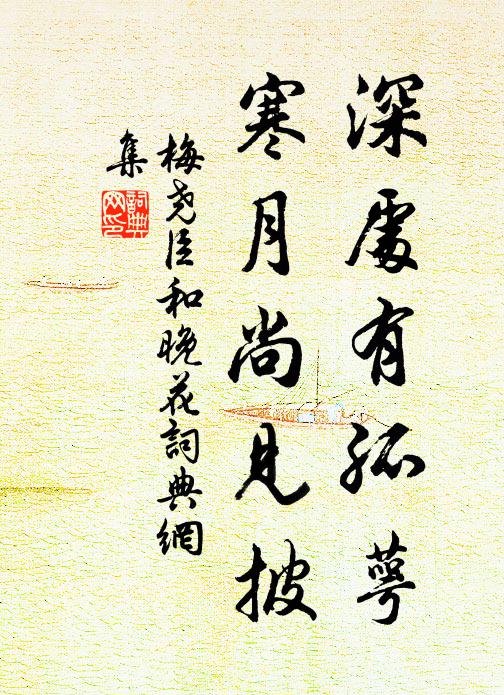 深處有孤萼
寒月尚見披
梅尧臣和晚花詞典網
集
詞典
网印